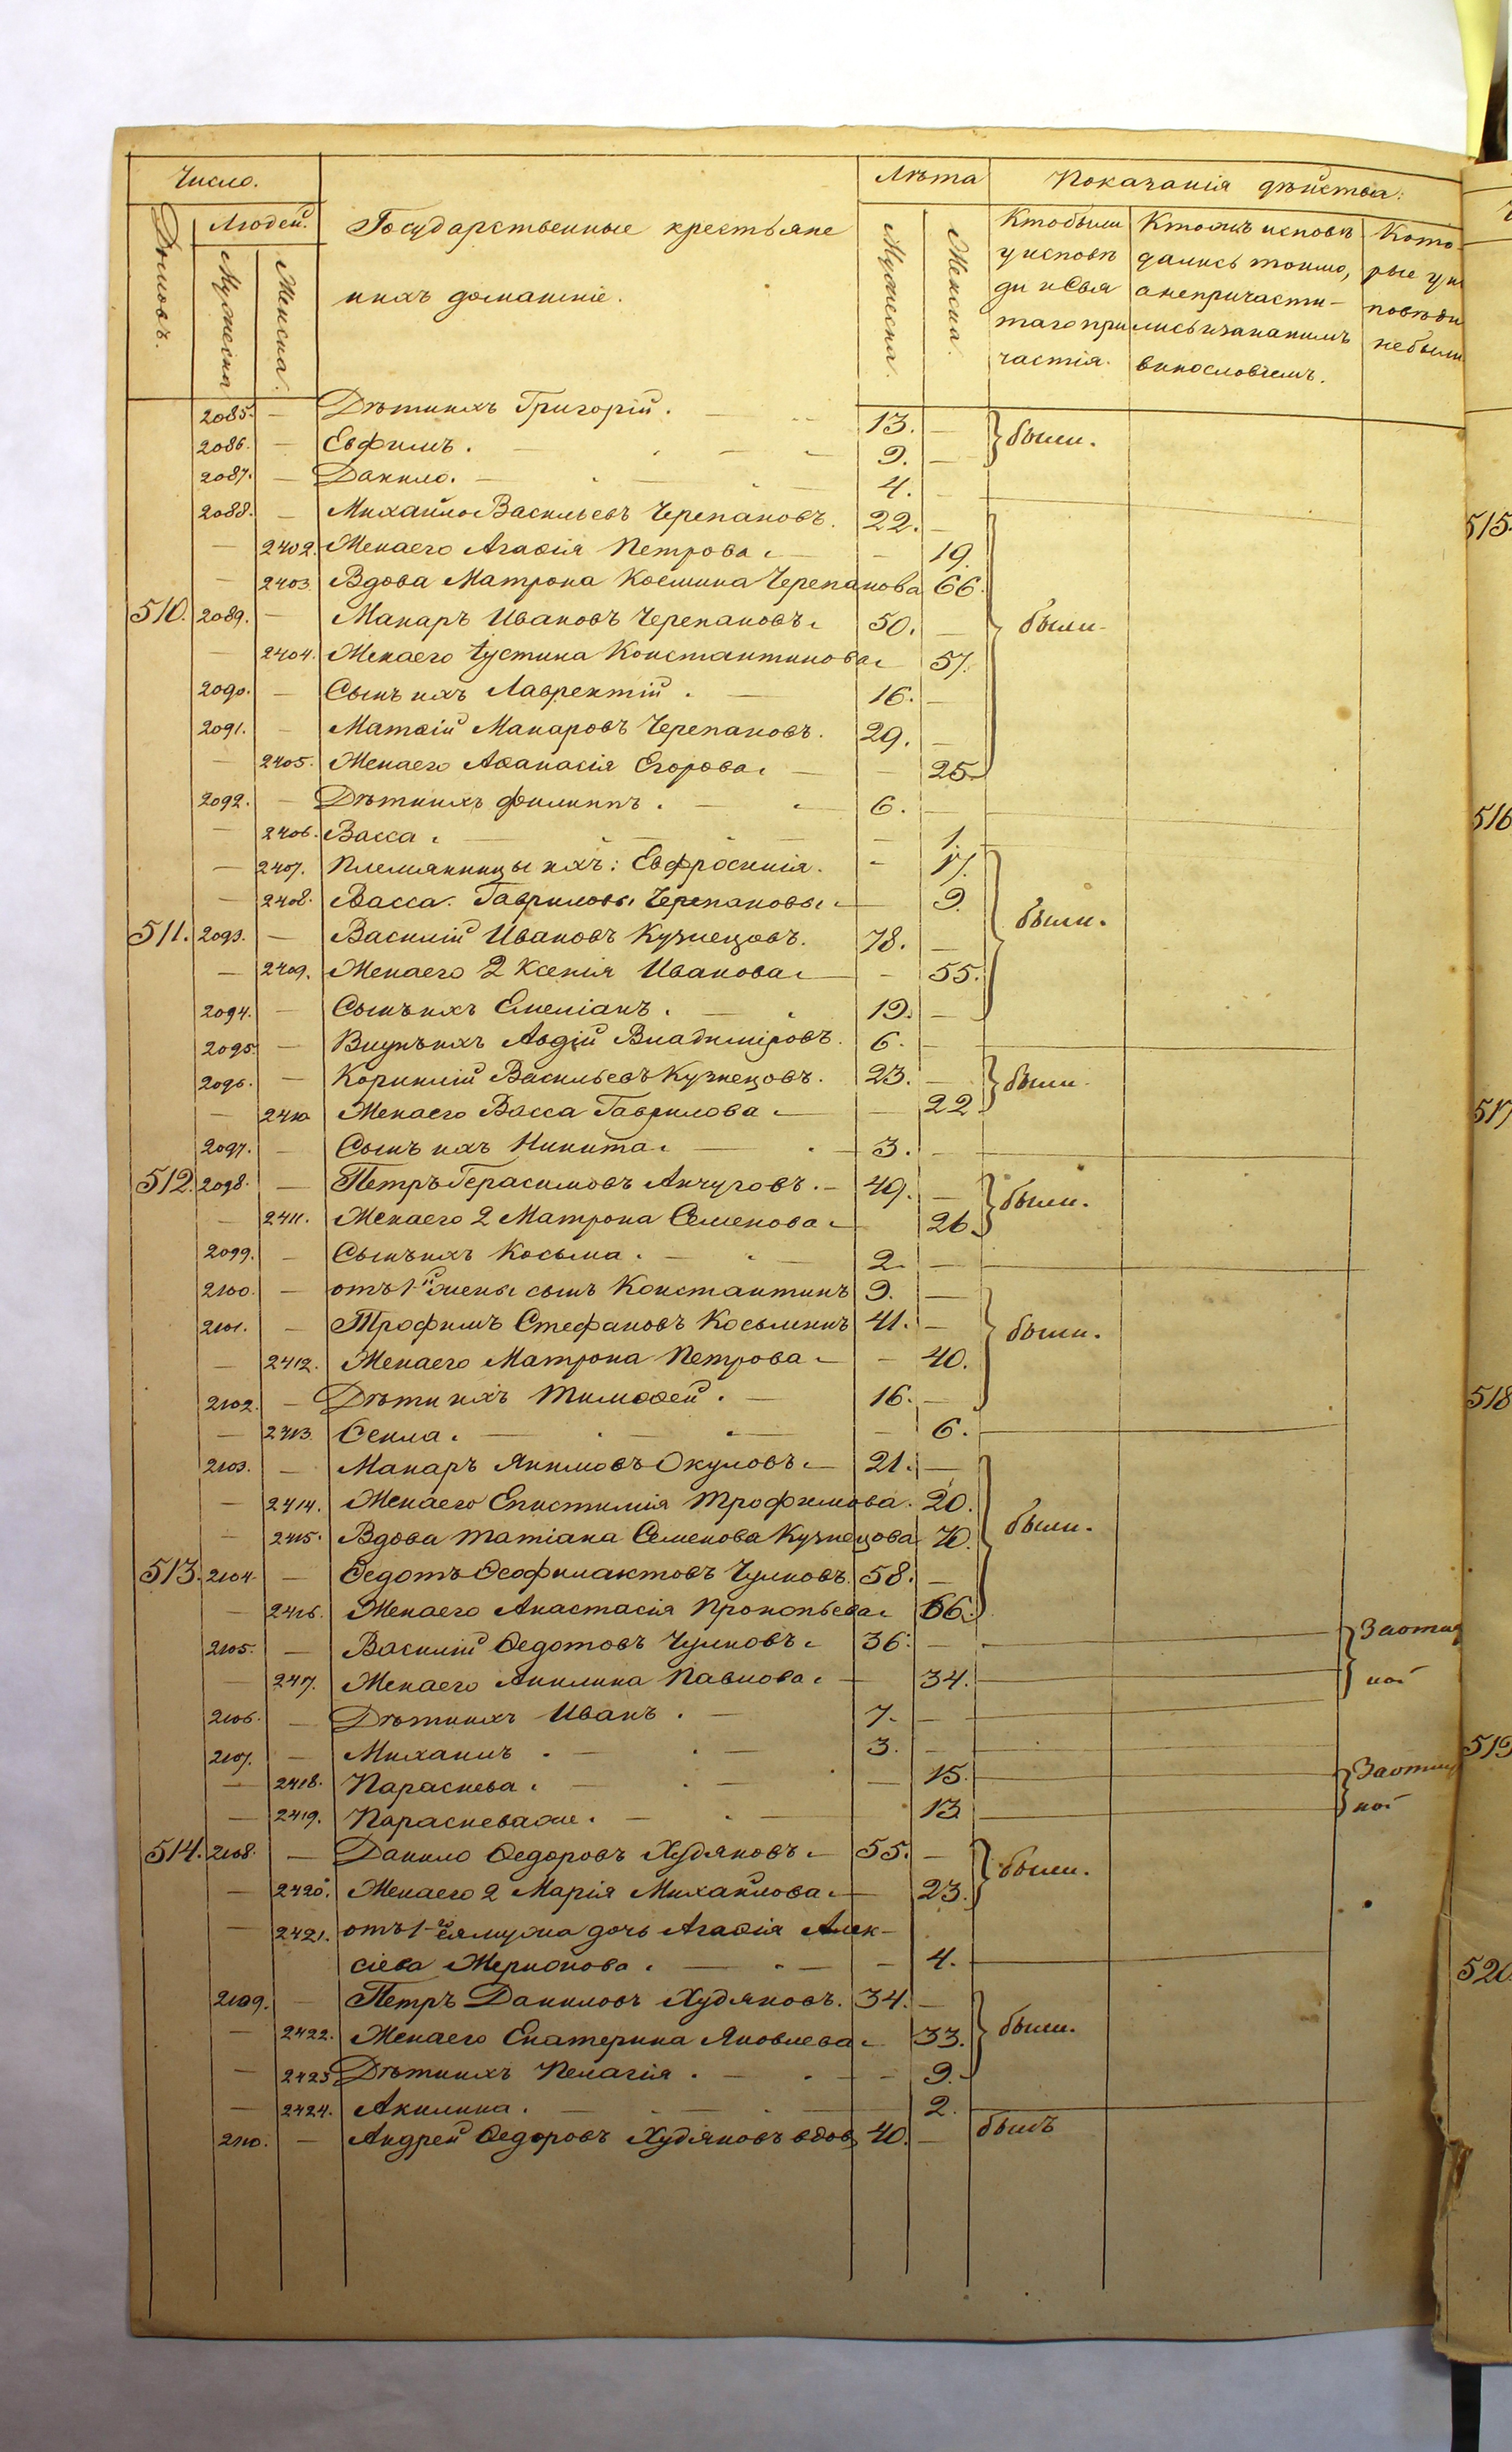 Число. Лѣта Показанія дѣйства:
Домовъ. Людей. Государственные крестьяне Мужеска. Женска. Кто были Кто жъ исповѣ Кото-
Мужеска Женска. ихъ домашніе. у исповѣ дались токмо, рые у ис
ди и Свя а непричасти- повѣди
таго при лись и за какимъ не были
частія. винословіемъ.
2085. — Дѣти ихъ Григорій. 13. — были.
2086. — Евфимъ. 9. —
2087. — Данило. 4. —
2088. — Михайло Васильевъ Черепановъ. 22. —
— 2402. Жена его Агаѳія Петрова — 19.
— 2403. Вдова Матрона Космина Черепанова 66.
510. 2089. — Макаръ Ивановъ Черепановъ 50. — были
— 2404. Жена его Іустина Константинова 57.
2090. — Сынъ ихъ Лаврентій. 16. —
2091. — Матѳій Макаровъ Черепановъ. 29. —
— 2405. Жена его Аѳанасія Егорова — 25.
2092. — Дѣти ихъ Филиппъ. 6. —
— 2406. Васса. — 1.
— 2407. Племянницы ихъ: Евфросинія. - 17.
— 2408. Васса. Гавриловы Черепановы 9. были.
511. 2093. — Василій Ивановъ Кузнецовъ. 78. —
— 2409. Жена его 2 Ксенія Иванова - 55.
2094. — Сынъ ихъ Емеліанъ. 19. —
2095. — Внукъ ихъ Авдій Владиміровъ. 6. —
2096. — Корнилій Васильевъ Кузнецовъ. 23. — были
— 2410. Жена его Васса Гаврилова — 22
2097. — Сынъ ихъ Никита 3. —
512. 2098. — Петръ Герасимовъ Анчуговъ. 49. — были.
— 2411. Жена его 2 Матрона Семенова 26.
2099. — Сынъ ихъ Косьма. 2. —
2100. — отъ 1й жены сынъ Константинъ 9. —
2101. — Трофимъ Стефановъ Косьминъ 41. — были.
— 2412. Жена его Матрона Петрова - 40.
2102. — Дѣти ихъ Тимоѳей. 16. —
— 2413. Ѳекла. — 6.
2103. — Макаръ Якимовъ Окуловъ 21. —
— 2414. Жена его Епистимія Трофимова. 20.
— 2415. Вдова Татіана Семенова Кузнецова 70. были.
513. 2104. — Ѳедотъ Ѳеофилактовъ Чулковъ. 58. —
— 2416. Жена его Анастасія Прокопьева 66.
2105. — Василій Ѳедотовъ Чулковъ 36. —
— 2417. Жена его Акилина Павлова 34.
2106. — Дѣти ихъ Иванъ. 7. —
2107. — Михаилъ. 3. —
— 2418. Параскева. — 15.
— 2419. Параскева же. 13
514. 2108. — Данило Ѳедоровъ Худяковъ 55. — были.
— 2420. Жена его 2 Марія Михайлова 23.
— 2421. отъ 1го ея мужа дочь Агаѳія Алек-
сіева - 4.
2109. — Петръ Даниловъ Худяковъ. 34. —
— 2422. Жена его Екатерина Яковлева 33. были.
— 2423 Дѣти ихъ Пелагія. - 9.
— 2424. Акилина. 2.
2110. — Андрей Ѳедоровъ Худяковъ вдов 40. — былъ
515.
516
517
518
519
520